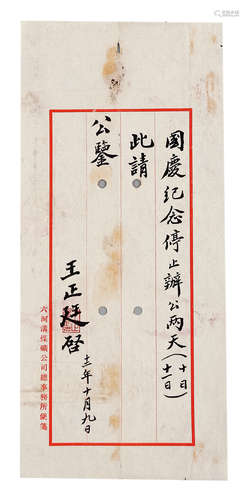 國慶紀念停止辦公兩天(十日十一日)
此請
公鑒
王正廷啓
十三年十月九日
六河溝煤礦公司總事務所便箋